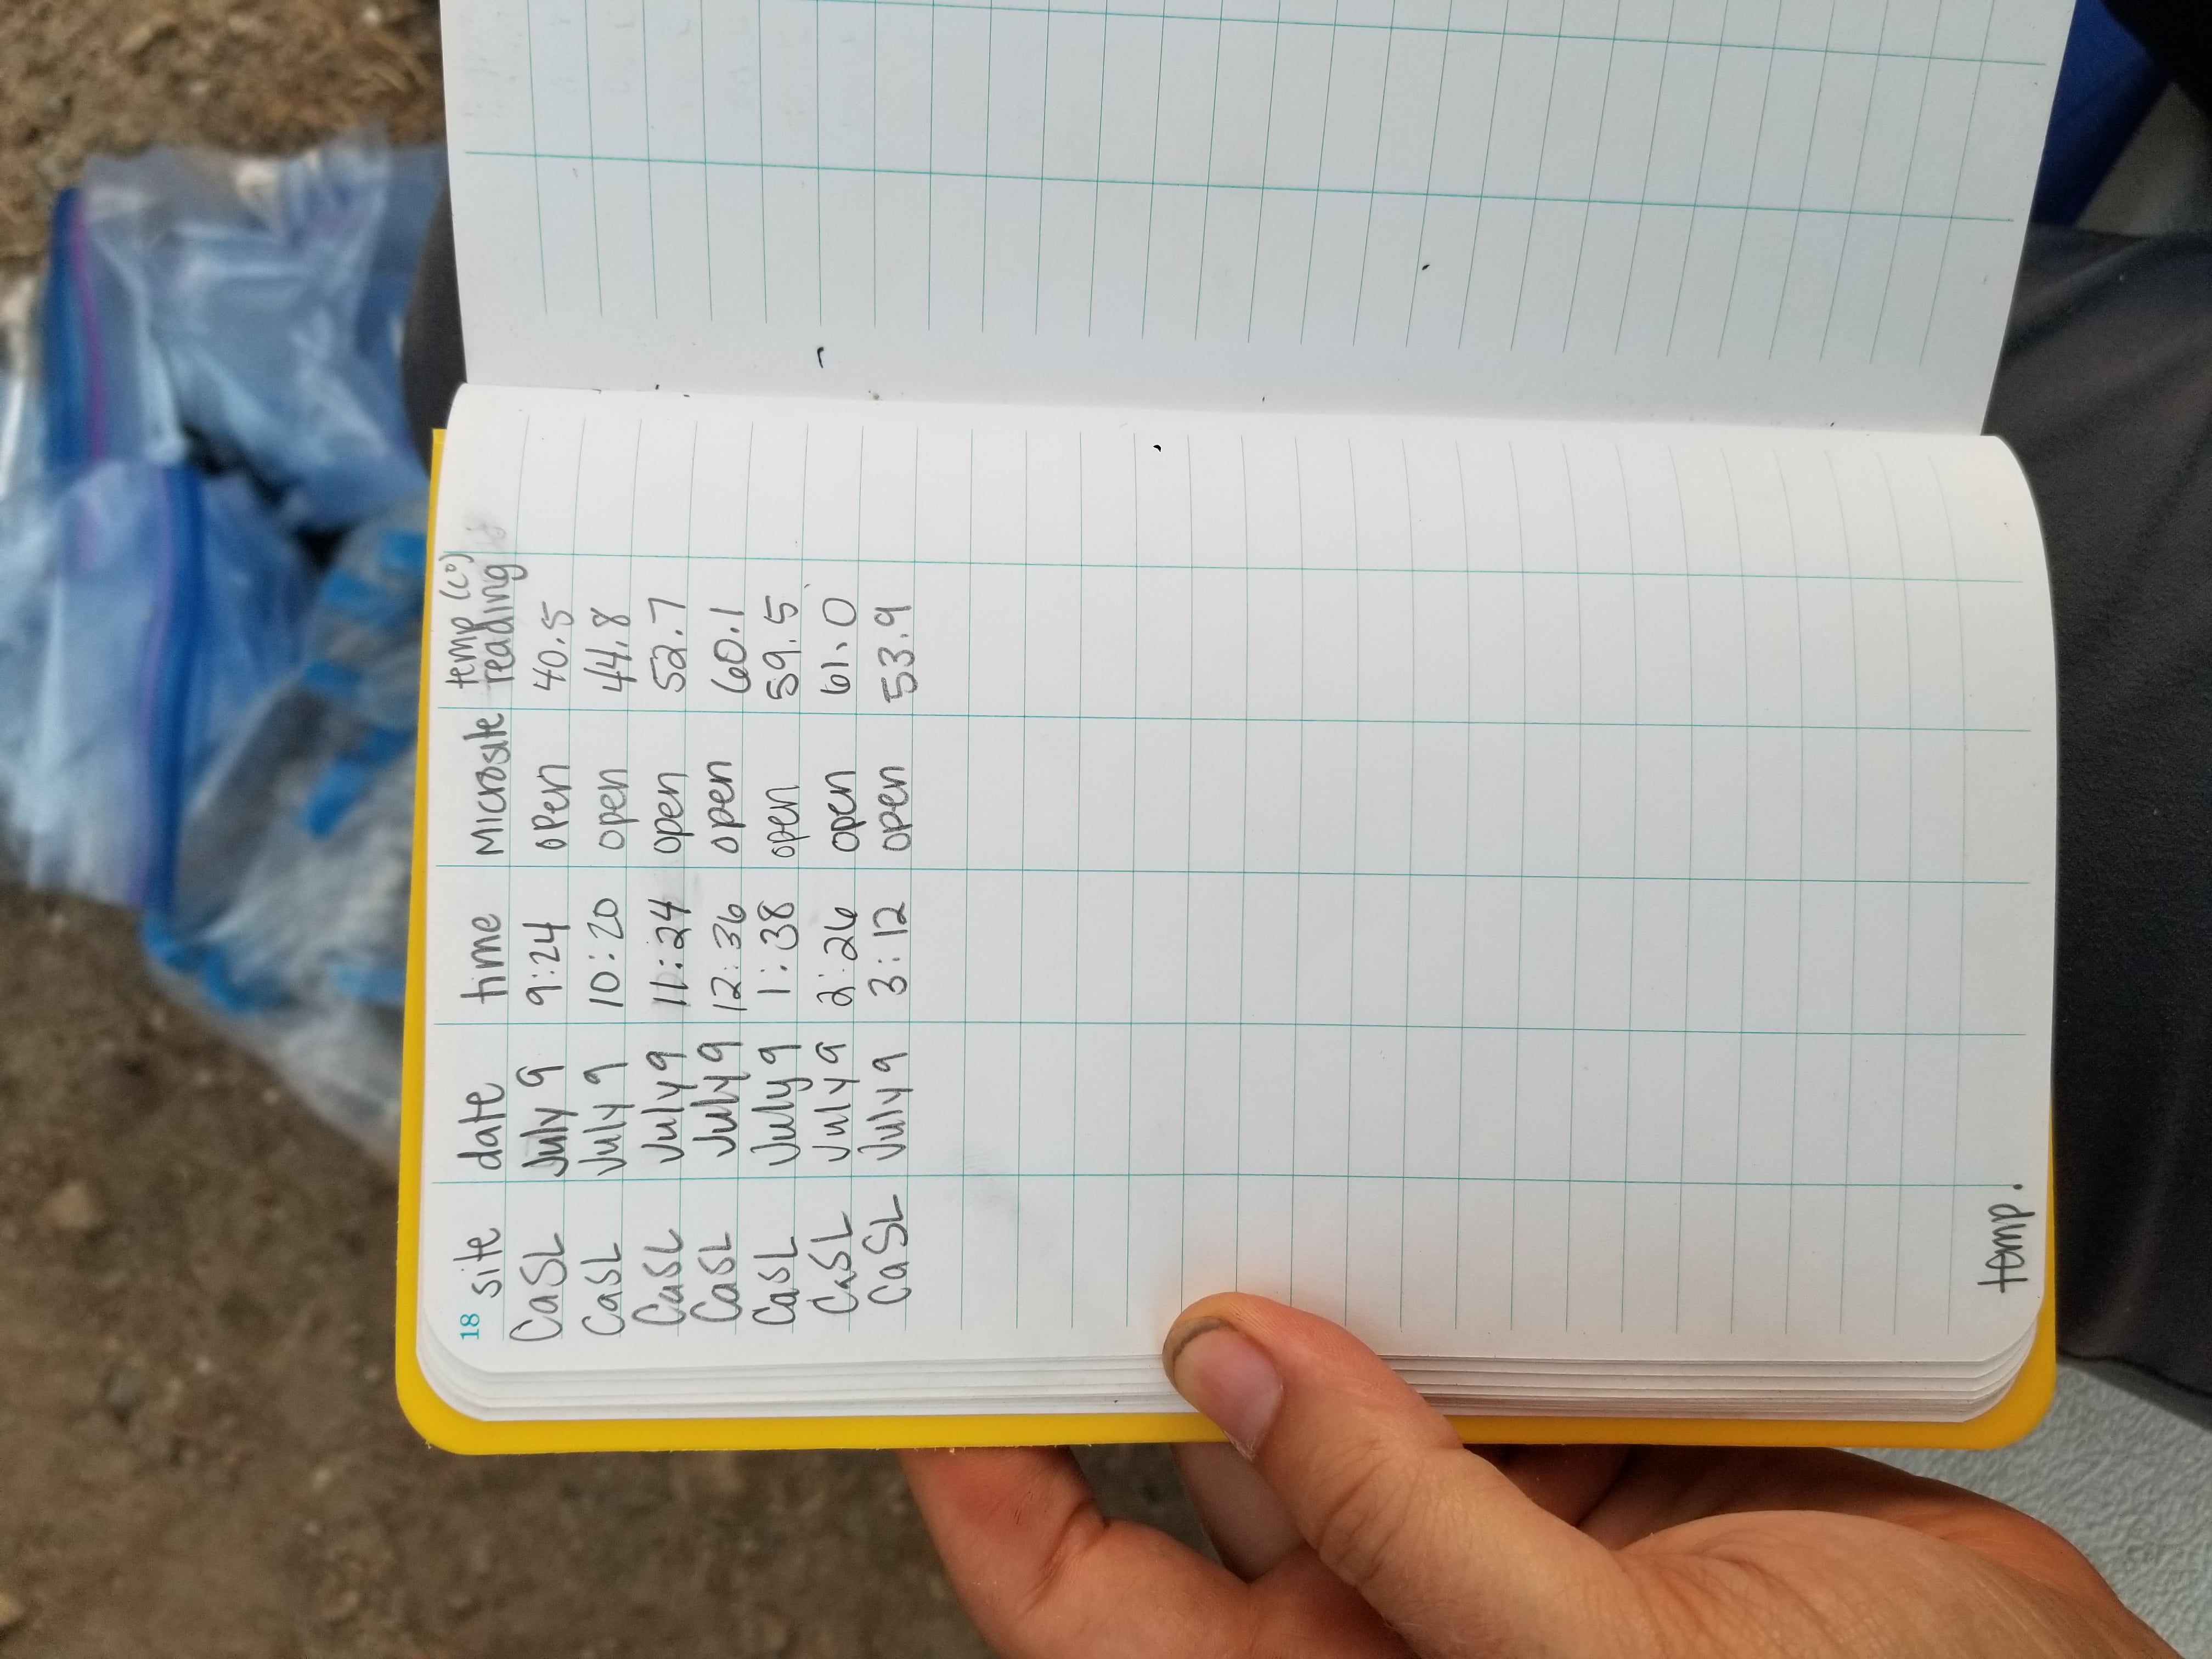 18 site date time Microsite temp (c°) reading
CaSL July 9 9:24 open 40.5
CaSL July 9 10:20 open 44.8
CaSL July 9 11:24 open 52.7
CaSL July 9 12:36 open 60.1
CaSL July 9 1:38 open 59.5
CaSL July 9 2:26 open 61.0
CaSL July 9 3:12 open 53.9
temp.